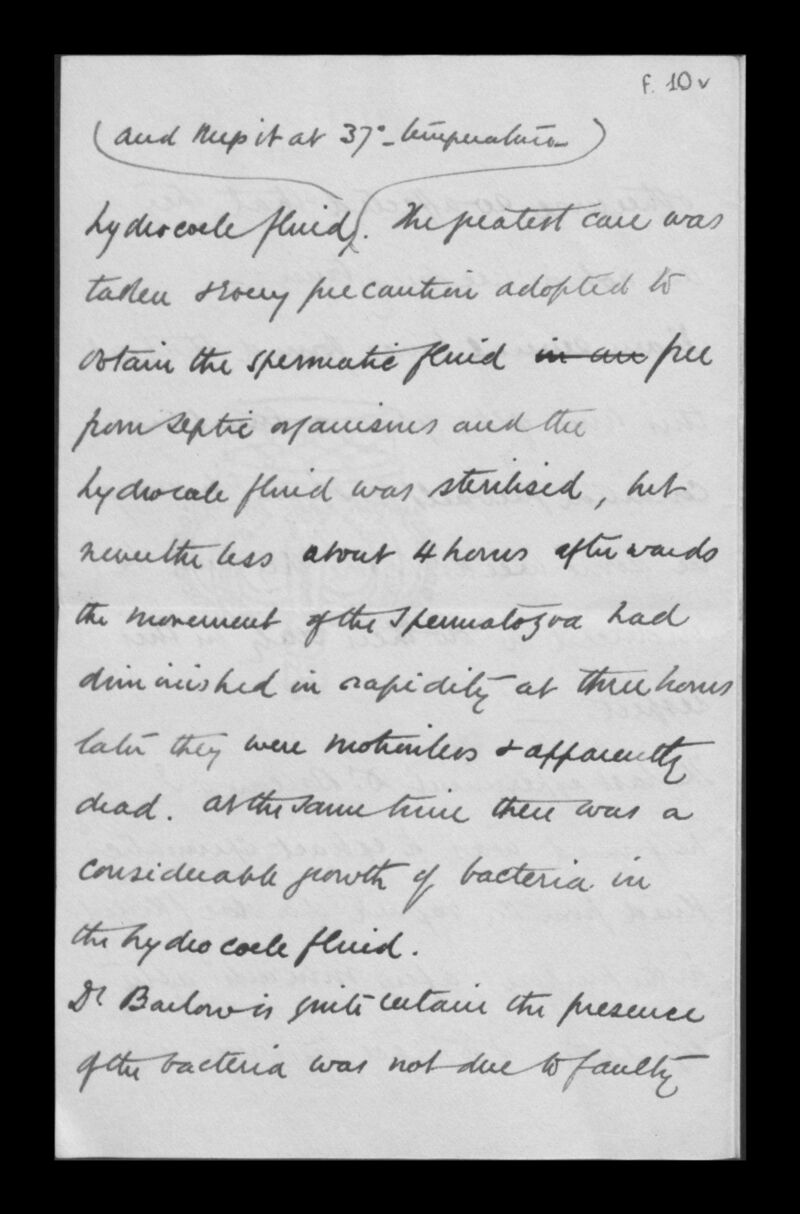 f. 10v
(and keep it at 37° temperature)
hydrocele fluid. The greatest care was
taken & every precaution adopted to
obtain the spermatic fluid in an free
from septic organisms and the
hydrocele fluid was sterilised, but
nevertheless about 4 hours afterwards
the movement of the spermatozoa had
diminished in rapidity at three hours
later they were motionless & apparently
dead. At the same time there was a
considerable growth of bacteria in
the hydrocele fluid.
Dr Barlow is quite certain the presence
of the bacteria was not due to faulty